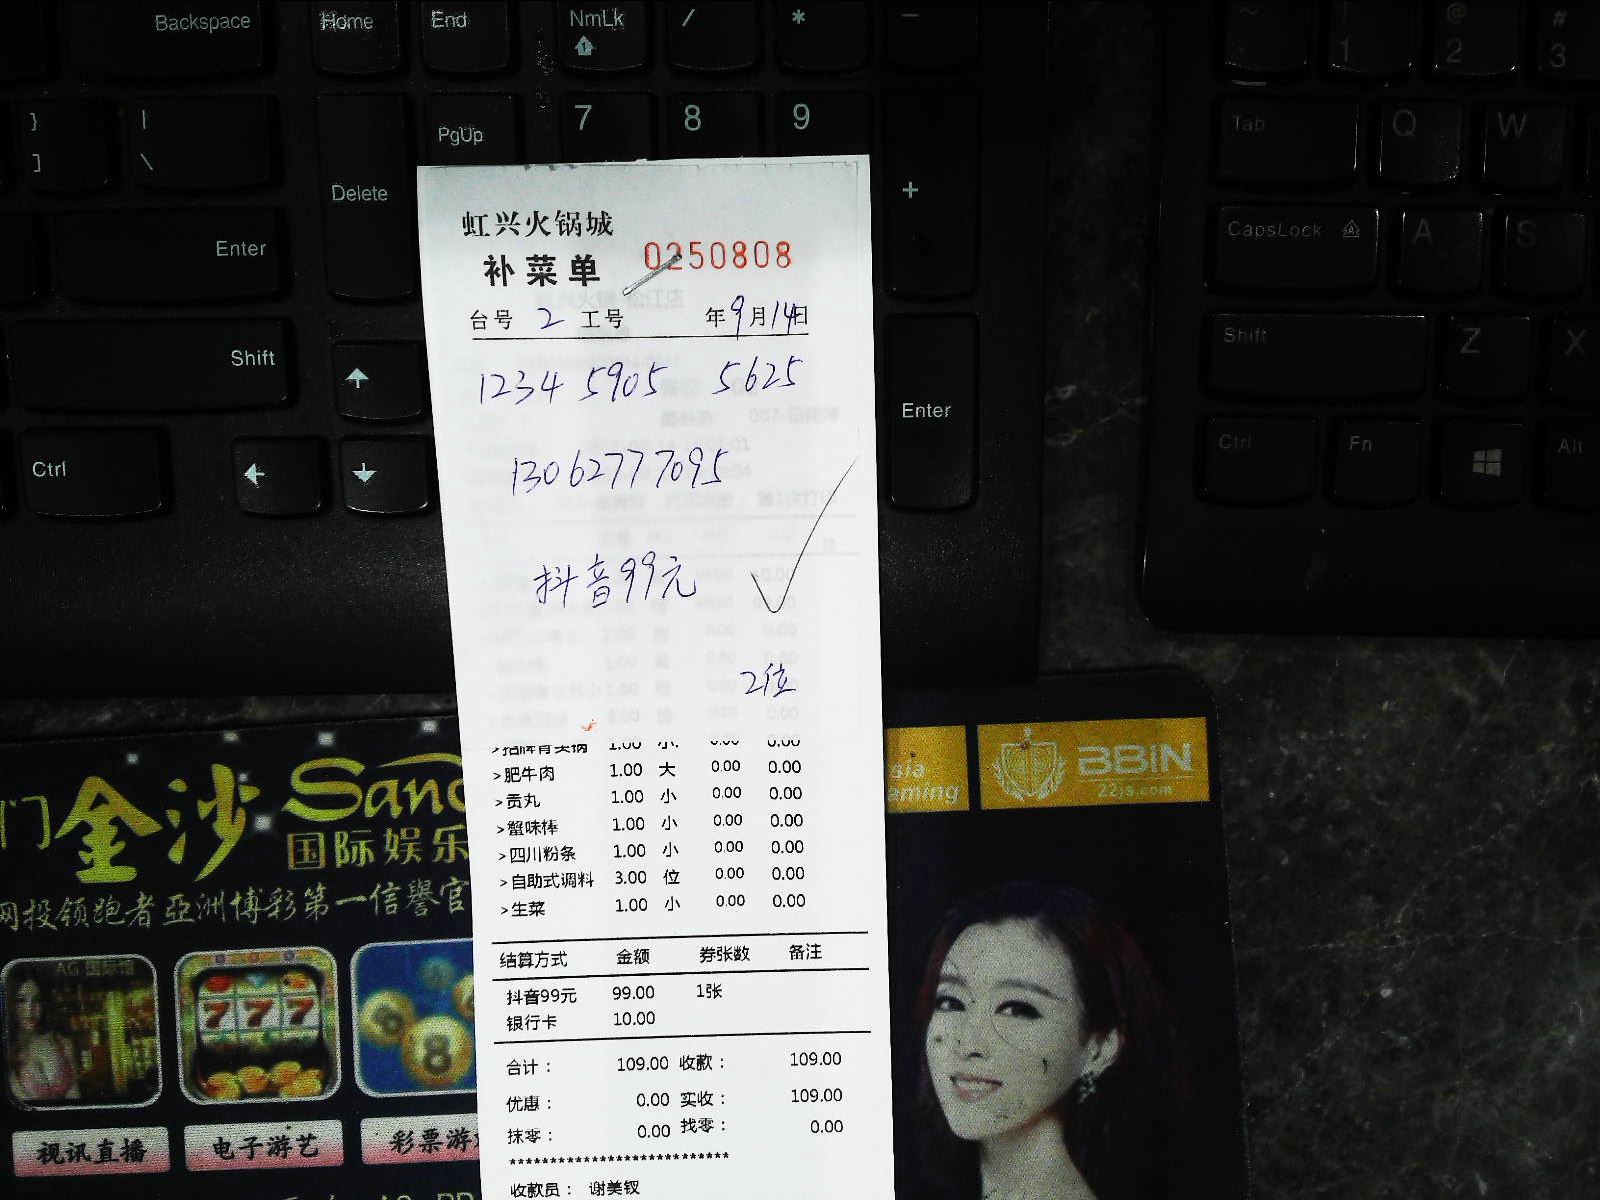 Backspace
Home
End
NmLk
/
*
-
~
!
1
@
2
#
3
}
]
|
\
Delete
PgUp
7
8
9
+
Tab
Q
W
Enter
CapsLock
A
S
Shift
Enter
Shift
Z
X
Ctrl
Ctrl
Fn
Alt
虹兴火锅城
补菜单 0250808
台号 2 工号 年9月14日
1234 5905 5625
13062777095
抖音99元
2位
>招牌骨头锅 1.00 小 0.00 0.00
>肥牛肉 1.00 大 0.00 0.00
>贡丸 1.00 小 0.00 0.00
>蟹味棒 1.00 小 0.00 0.00
>四川粉条 1.00 小 0.00 0.00
>自助式调料 3.00 位 0.00 0.00
>生菜 1.00 小 0.00 0.00
结算方式 金额 券张数 备注
抖音99元 99.00 1张
银行卡 10.00
合计： 109.00 收款： 109.00
优惠： 0.00 实收： 109.00
抹零： 0.00 找零： 0.00
***************************
收款员： 谢美钗
门金沙 Sand
国际娱乐
网投领跑者亞洲博彩第一信譽官
AG 国际馆
777
8
视讯直播
电子游艺
彩票游
BBIN
22js.com